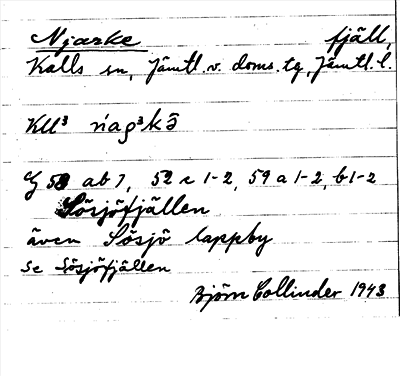 Njarke fjäll,
Kalls sn, Jämtl. v. doms. tg, Jämtl. l.
KU³
G 58 ab 7, 52 c 1-2, 59 a 1-2, b 1-2
Sösjöfjällen
även Sösjö lappby
se Sösjöfjällen
Björn Collinder 1943